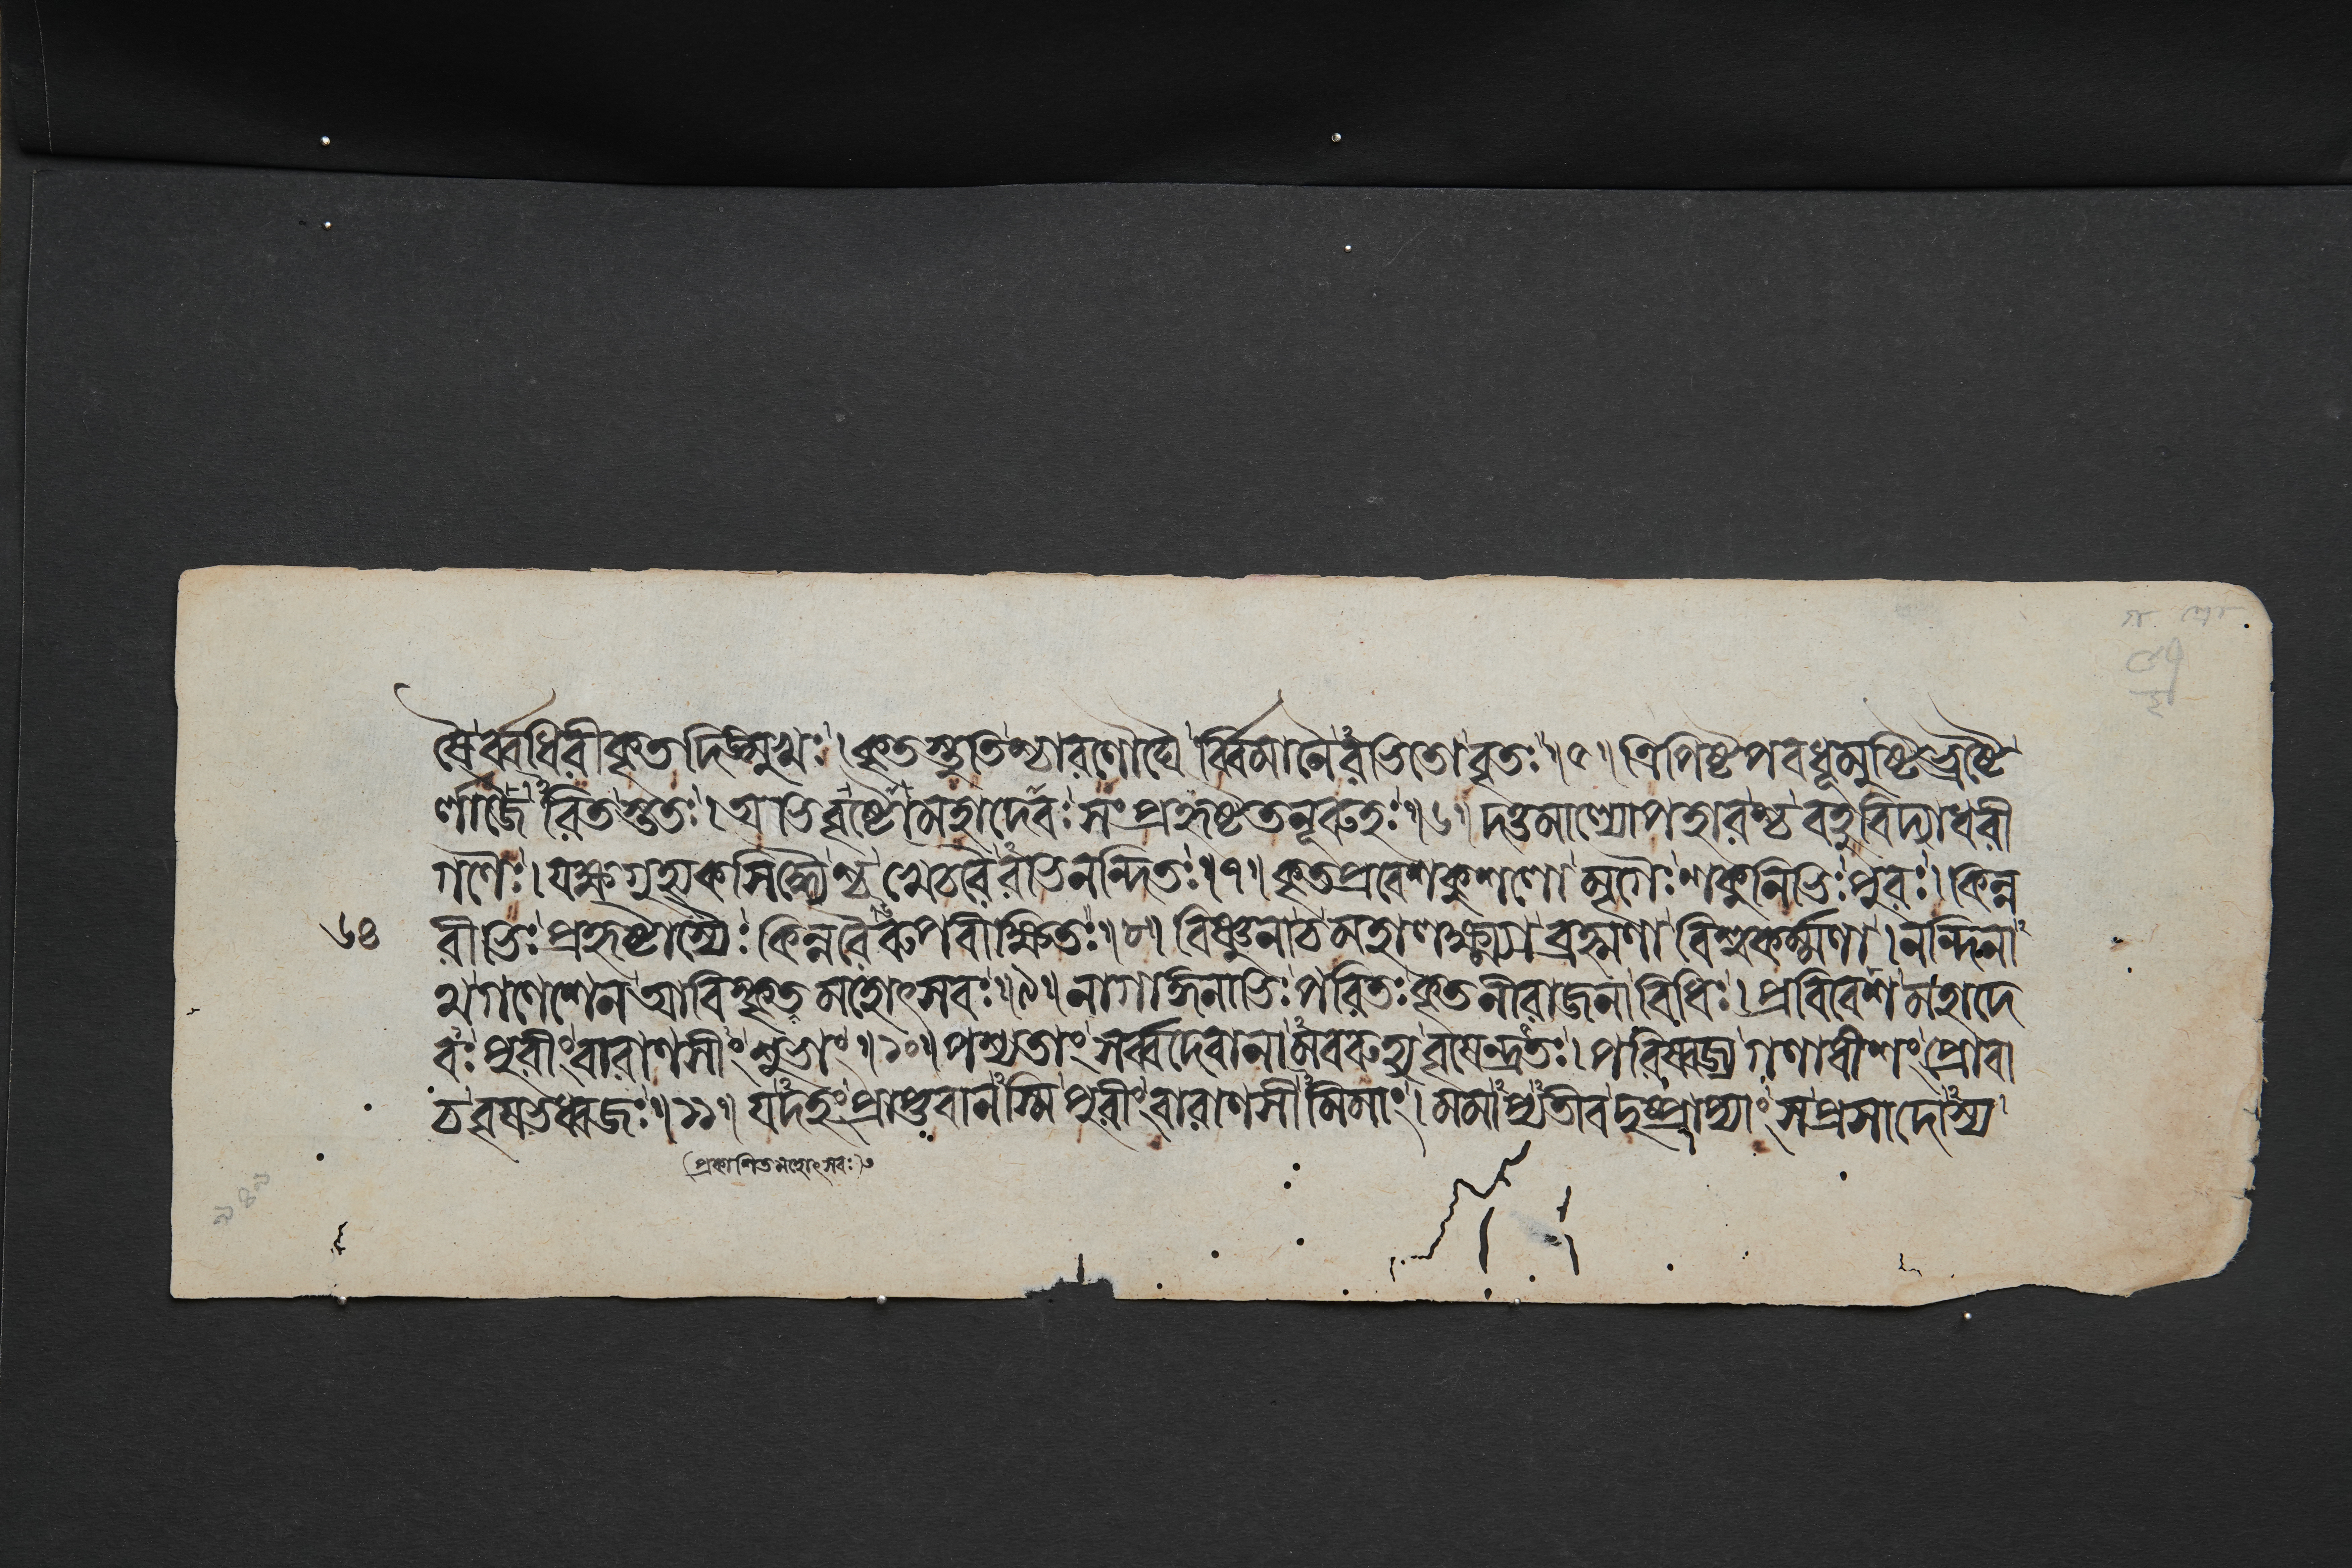 ষৈর্ব্বধিরীকৃতদিঙ্মুখঃ। কৃতস্তুতিশ্চারণৌঘৈ র্ব্বিমানৈরভিতোবৃতঃ॥৫॥ ত্রিপিষ্টপবধূমুষ্টিভ্রষ্টৈ
র্লাজৈরিতস্ততঃ। অভিবৃষ্টোমহাদেবঃ সংপ্রহৃষ্টতনূরুহঃ॥৬॥ দত্তমাল্যোপহারশ্চ বহুবিদ্যাধরী
গণৈঃ। যক্ষগুহ্যকসিদ্ধৈশ্চ খেচরৈরভিনন্দিতঃ॥৭॥ কৃতপ্রবেশকুশলো মৃগৈঃ শকুনিভিঃ পুরঃ। কিন্ন
৬৪ রীভিঃ প্রহৃষ্টাস্যৈঃ কিন্নরৈরুপবীক্ষিতঃ॥৮॥ বিষ্ণুনাচমহালক্ষ্ম্যা ব্রহ্মণা বিশ্বকর্ম্মণা। নন্দিনা
থগণেশেন আবিষ্কৃতমহোৎসবঃ॥৯॥ নাগাঙ্গনাভিঃ পরিতঃ কৃতনীরাজনাবিধিঃ। প্রবিবেশ মহাদে
বঃ পুরীং বারাণসীং শুভাং॥১০॥ পশ্যতাং সর্ব্বদেবানামবরুহ্য বৃষেন্দ্রতঃ। পরিষ্বজ্য গণাধীশং প্রোবা
চবৃষভধ্বজঃ॥১১॥ যদহং প্রাপ্তবানস্মি পুরীং বারাণসীমিমাং। মমাপ্যতীবদুষ্প্রাপ্যাং সপ্রসাদোস্য
(প্রকাশিতমহোৎসবঃ)